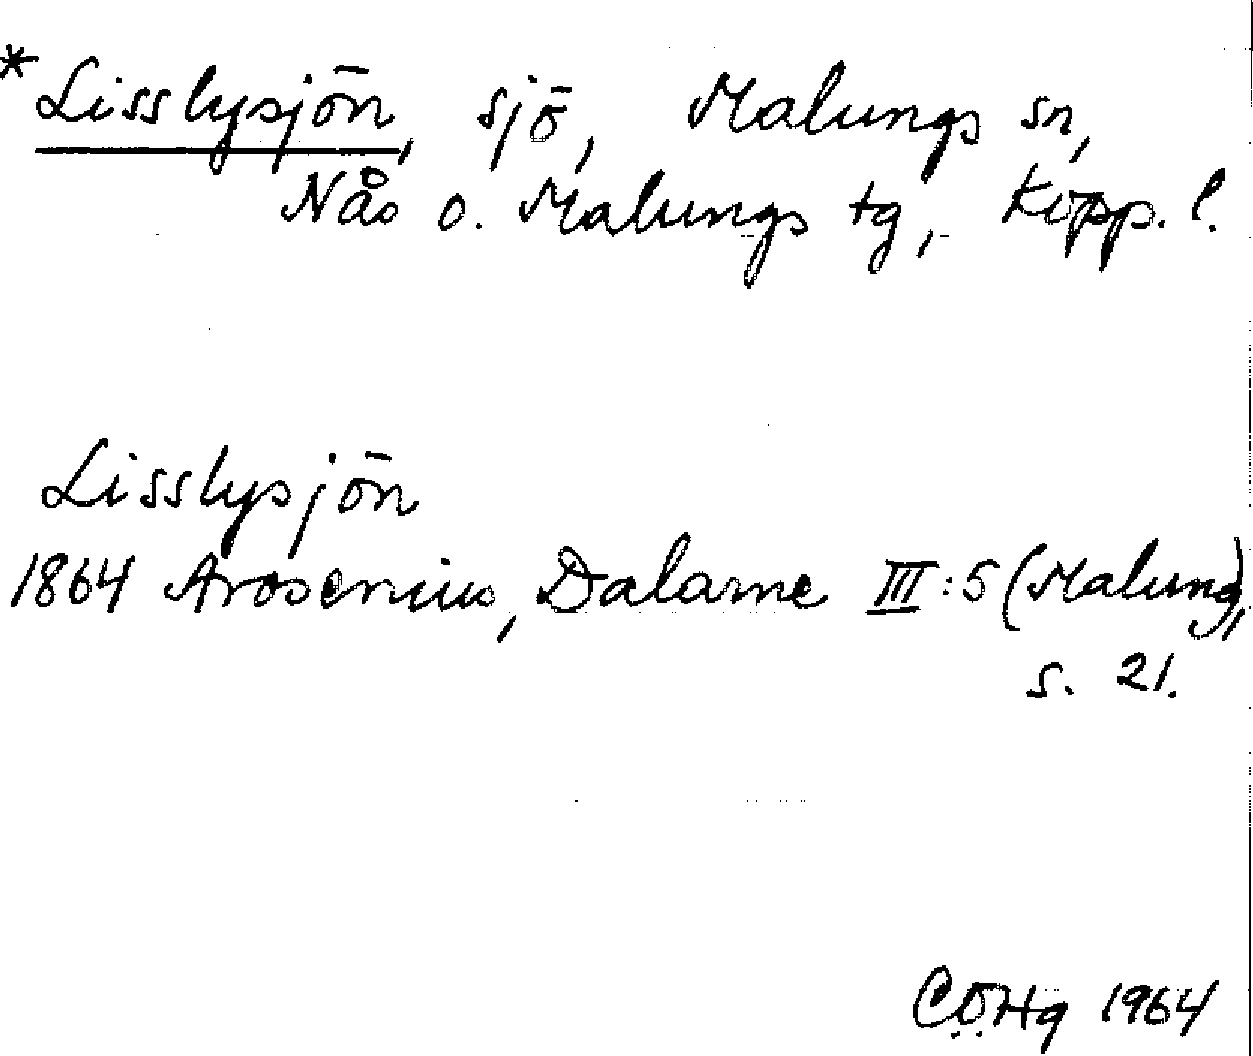 *Lisslysjön, sjö, Malungs sn,
Nås o. Malungs tg, Kopp. l.
Lisslysjön
1864 Arosenius, Dalarne III:5 (Malung),
s. 21.
CÖHg 1964